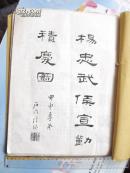 楊忠武侯宣勤
積慶圖
甲申季冬